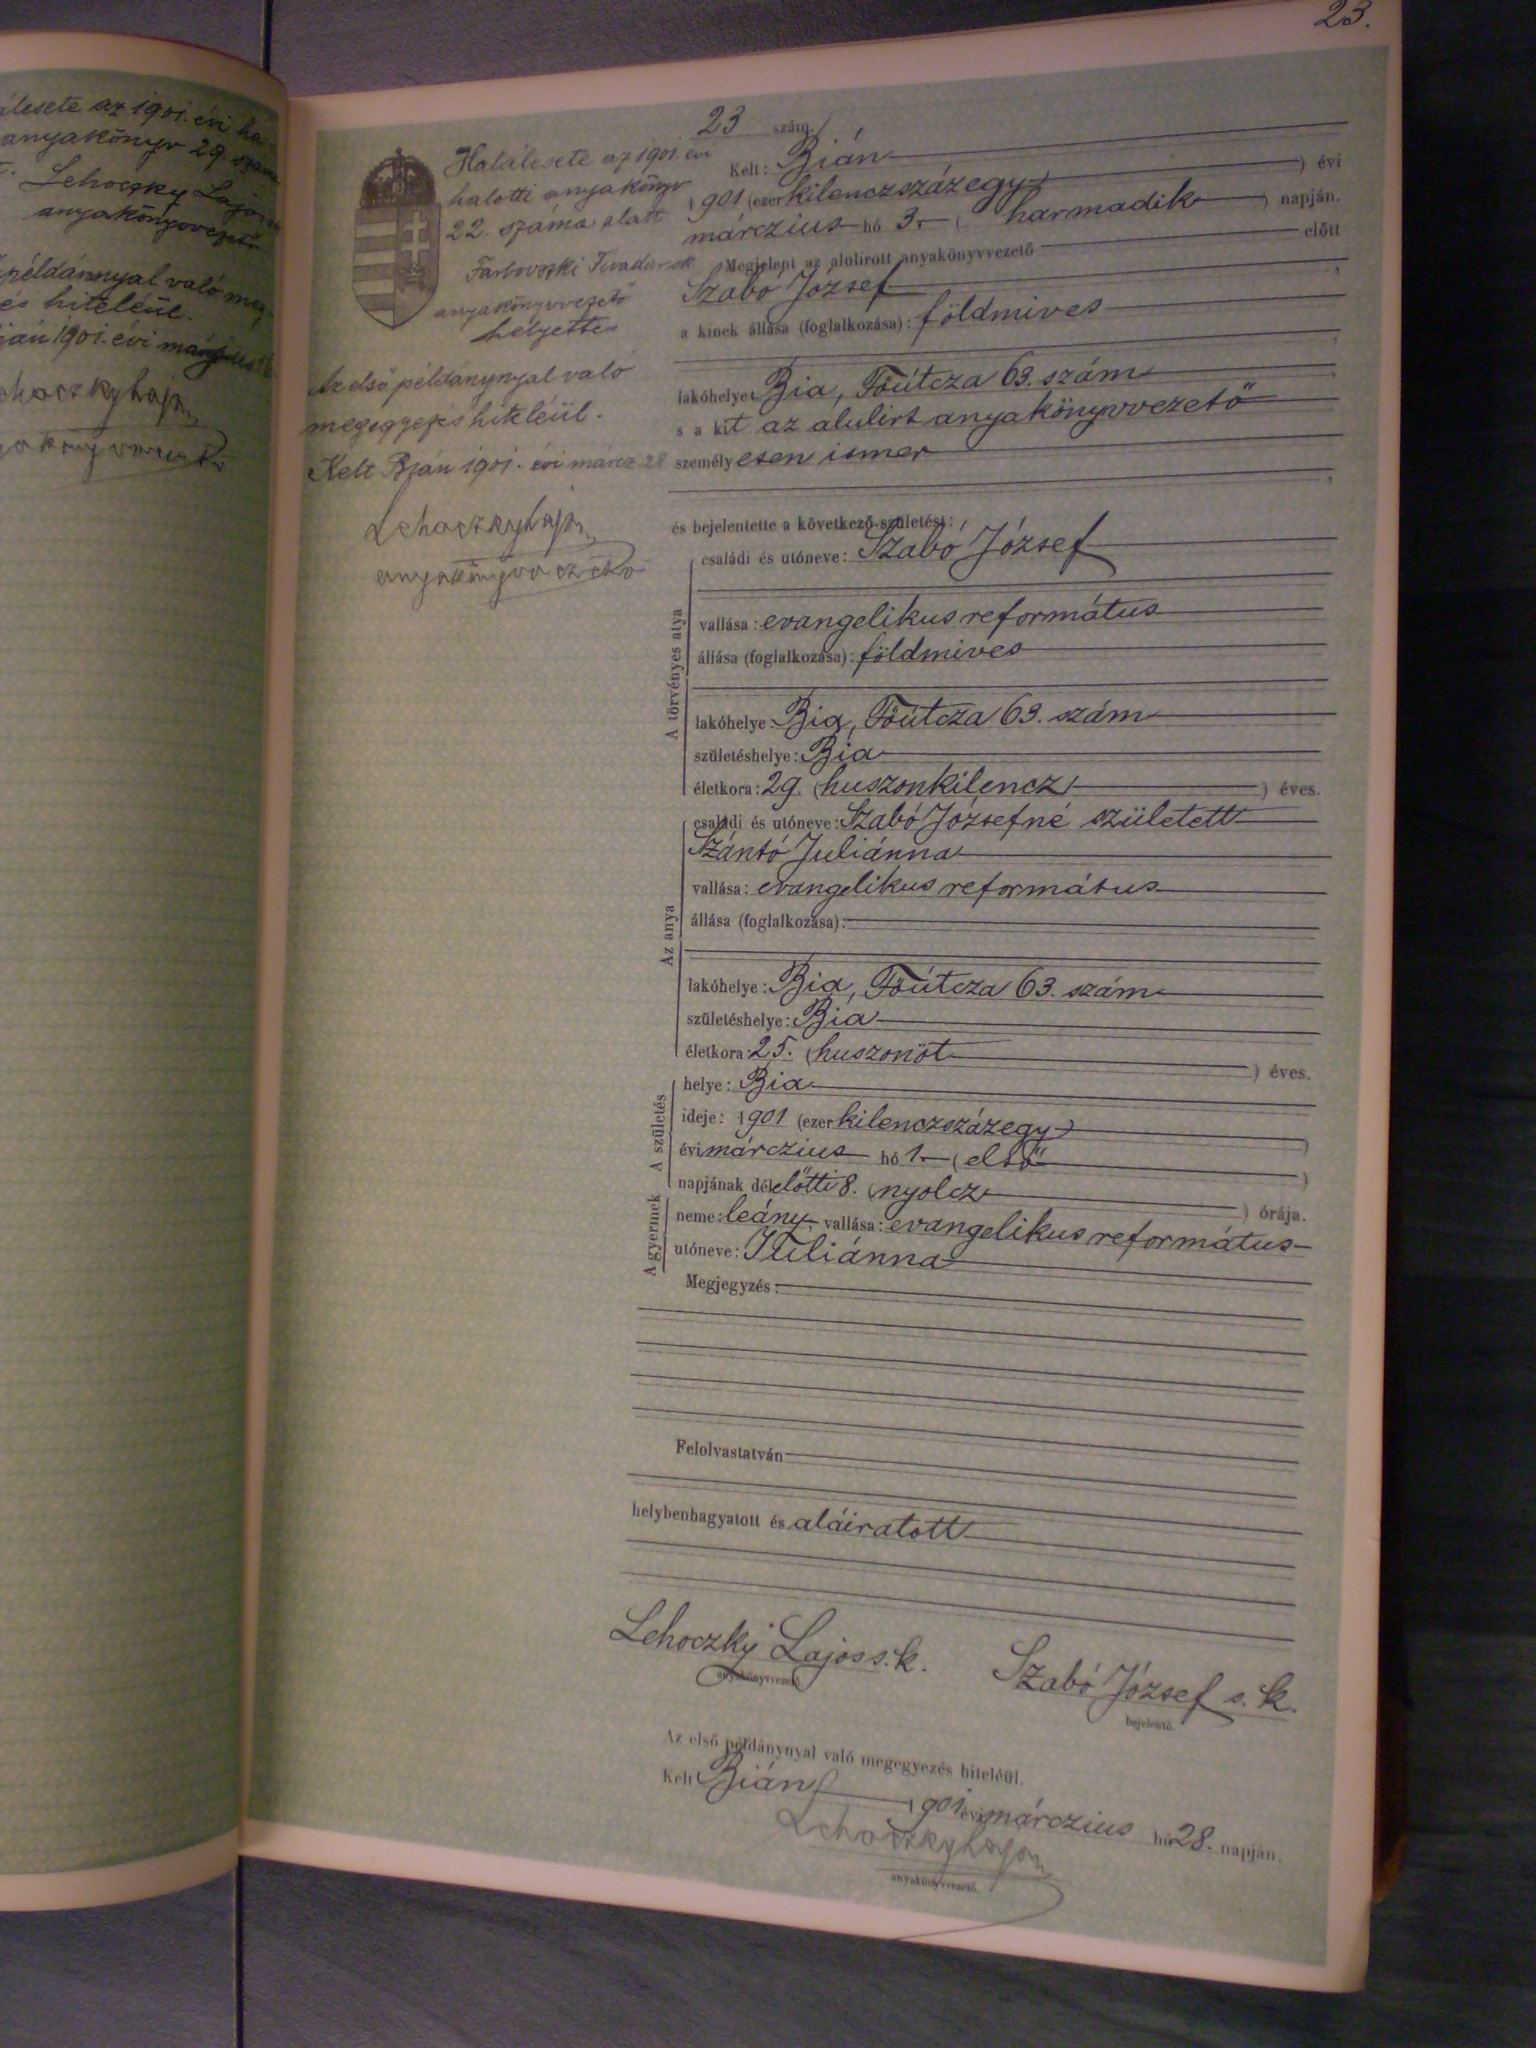 23.
álesete az 1901. évi ha-
anyakönyv 29. száma
Lehoczky Lajos
anyakönyvvezető
példánnyal való meg-
és hiteléül.
ián 1901. évi
Lehoczky Lajos
anyakönyvvezető
Halálesete az 1901 évi
halotti anyakönyv
22. száma alatt
anyakönyvvezető
helyettes
Az első példánynyal való
megegyezés hiteléül.
Kelt Bián 1901. évi márcz 28
Lehoczky Lajos
anyakönyvvezető
23 szám.
Kelt: Bián
1901 (ezer kilenczszázegy) évi
márczius hó 3. (harmadik) napján.
Megjelent az alulirott anyakönyvvezető előtt
Szabó József,
a kinek állása (foglalkozása): földmives
,
lakóhelye Bia, Főútcza 63. szám,
s a kit az alulirt anyakönyvvezető
személyesen ismer
,
és bejelentette a következő születést:
A törvényes atya
családi és utóneve: Szabó József
vallása: evangelikus református
állása (foglalkozása): földmives
lakóhelye: Bia, Főútcza 63. szám
születéshelye: Bia
életkora: 29. (huszonkilencz) éves.
Az anya
családi és utóneve: Szabó Józsefné született
Szántó Juliánna
vallása: evangelikus református
állása (foglalkozása):
lakóhelye: Bia, Főútcza 63. szám
születéshelye: Bia
életkora: 25. (huszonöt) éves.
A születés
helye: Bia
ideje: 1901 (ezer kilenczszázegy)
évi márczius hó 1. (első)
napjának délelőtti 8. (nyolcz) órája.
A gyermek
neme: leány, vallása: evangelikus református
utóneve: Juliánna
Megjegyzés:
Felolvastatván
helybenhagyatott és aláiratott
Lehoczky Lajos s.k. Szabó József s.k.
anyakönyvvezető. bejelentő.
Az első példánynyal való megegyezés hiteléül.
Kelt Bián 1901 évi márczius hó 28. napján.
Lehoczky Lajos
anyakönyvvezető.